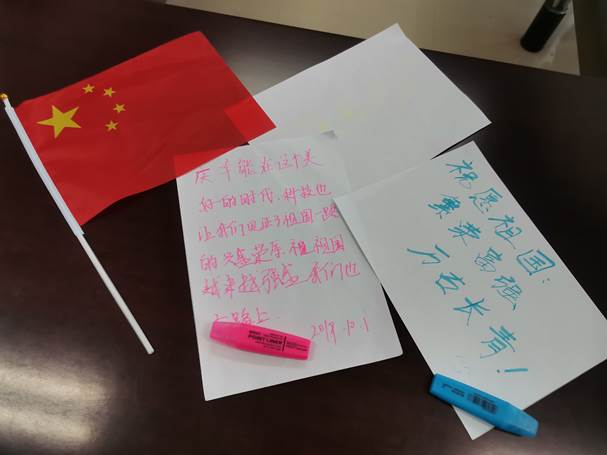 庆幸能在这个美
好的时代,科技也
让我们见证了祖国一路
的兴盛荣辱.祖国
越来越强盛 我们也
路上.
2019.10.1
POINT LINER
祝愿祖国:
繁荣富强
万古长青!